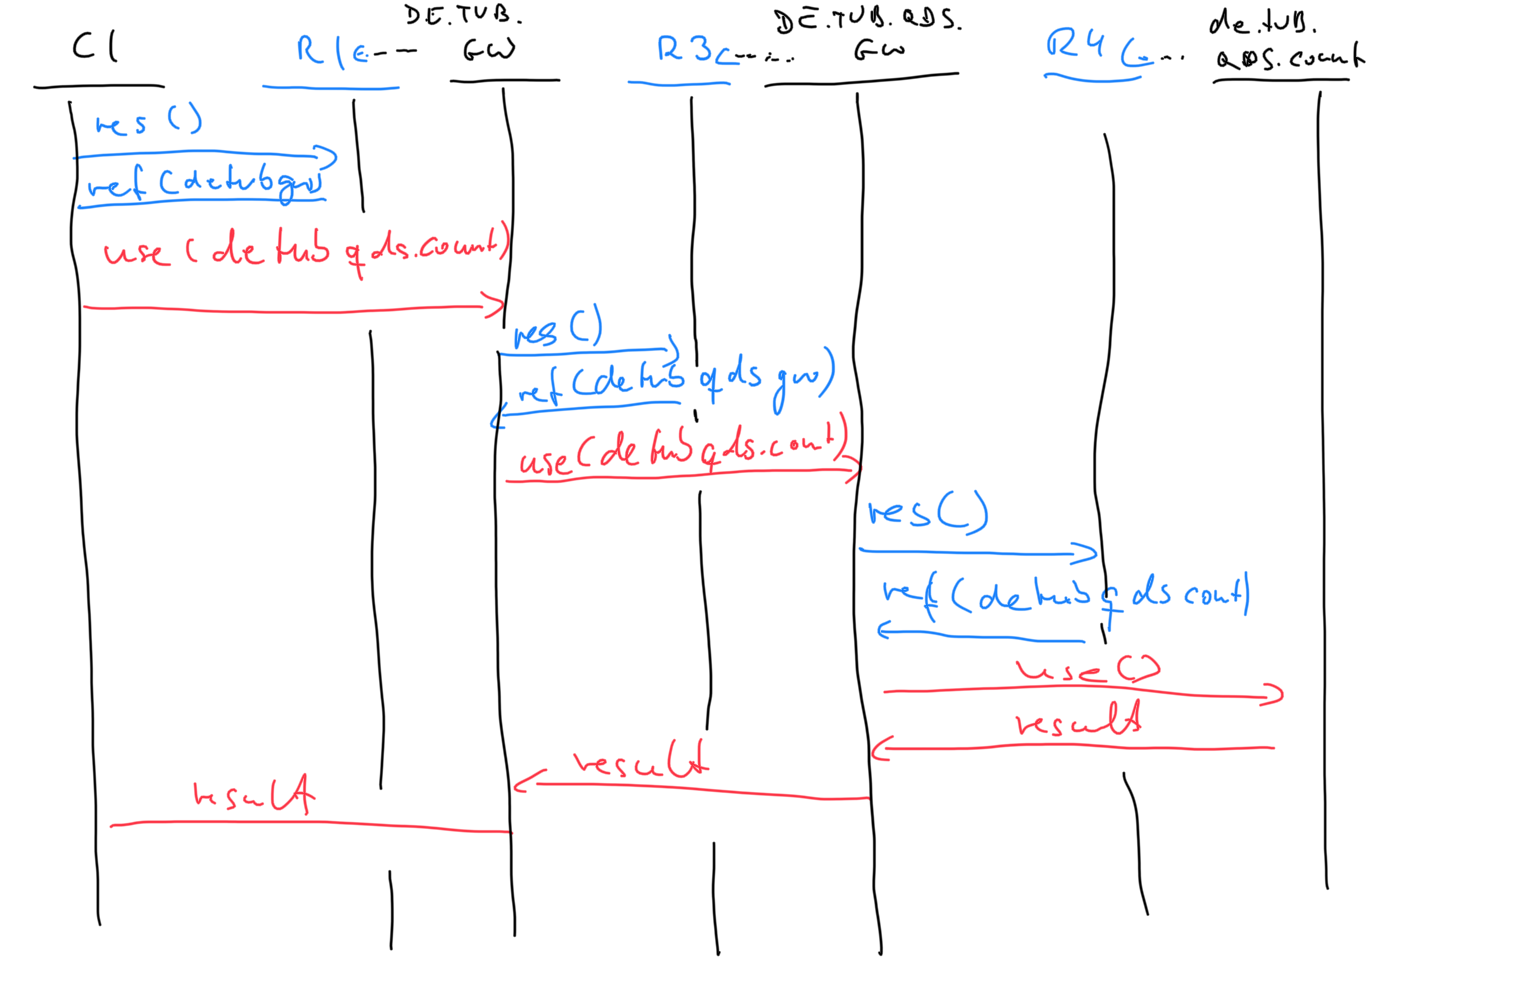 C1
R1
DE.TUB.
GW
R3
DE.TUB.QDS.
GW
R4
de.tub.
QDS.count
res()
ref(detubgw)
use(de tub qds.count)
res()
ref(de tub qds gw)
use(de tub qds.count)
res()
ref(de tub qds count)
use()
result
result
result